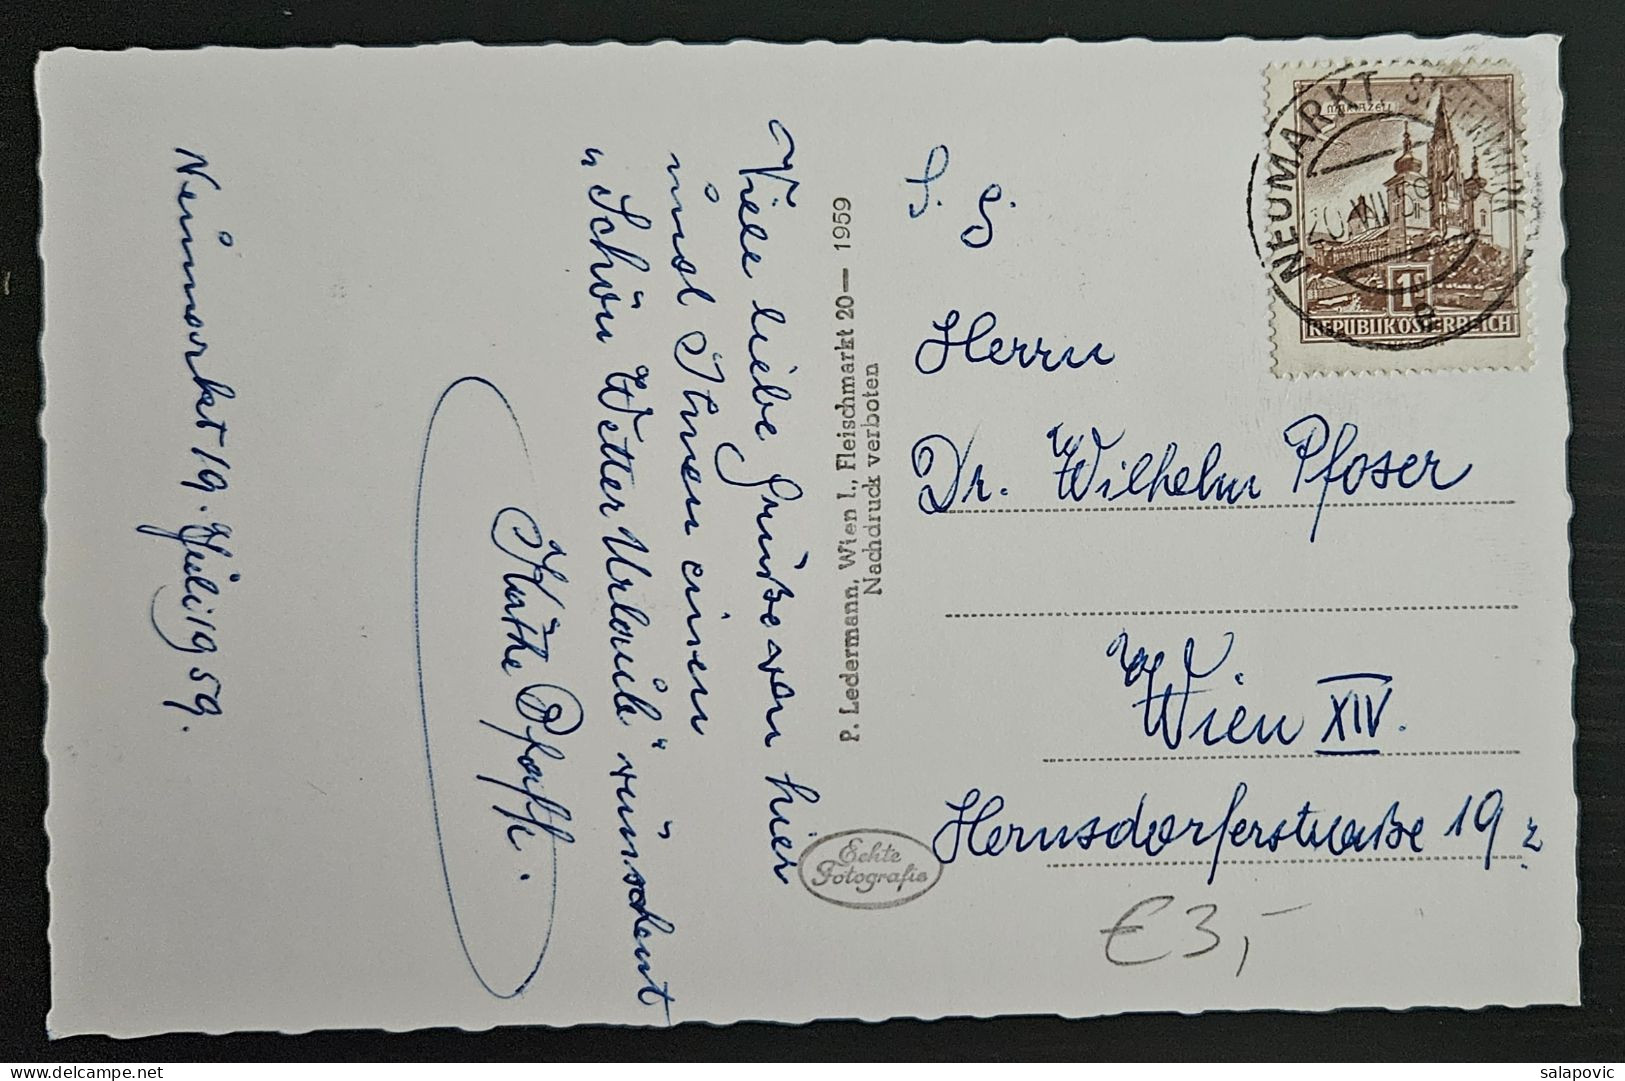 Neumarkt 19. Juli 1959.
Viele liebe Grüße von hier
und Ihnen einen
"Schön Wetter Urlaub" wünscht
Käthe Pfaffl.
P. Ledermann, Wien I., Fleischmarkt 20— 1959
Nachdruck verboten
Echte
Fotografie
S. g.
Herrn
Dr. Wilhelm Pfoser
Wien XIV.
Hernsdorferstraße 19
€3,-
MARIAZELL
1S
REPUBLIK ÖSTERREICH
NEUMARKT STEIERMARK
20.VII.59
e
salapovic